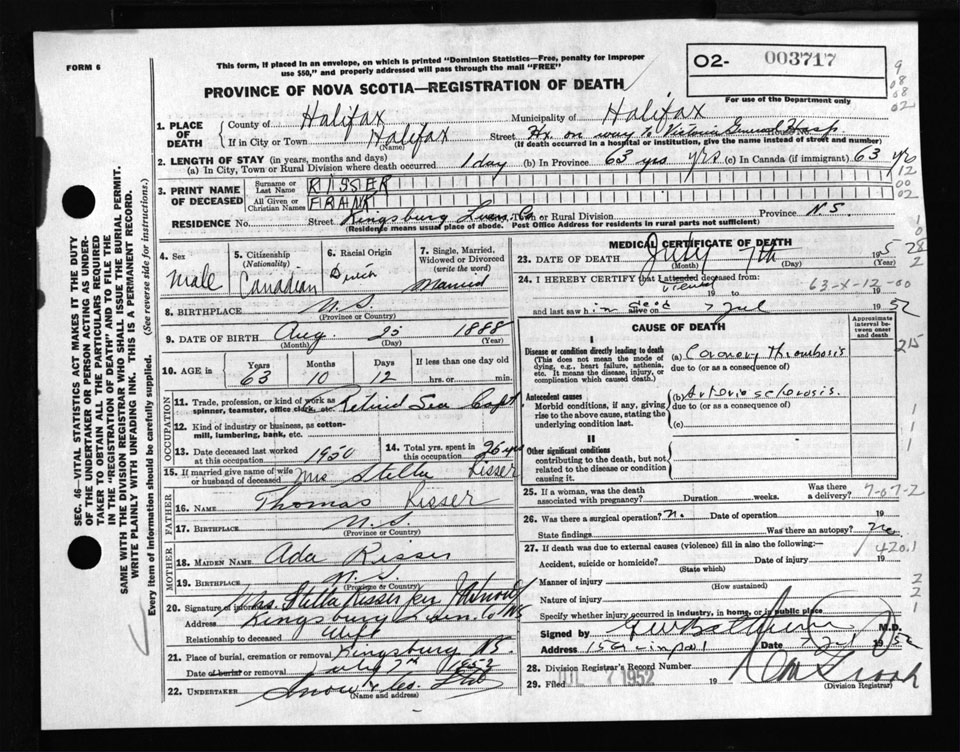 FORM 6
This form, if placed in an envelope, on which is printed "Dominion Statistics—Free, penalty for improper
use $50," and properly addressed will pass through the mail "FREE"
O2- 003717
PROVINCE OF NOVA SCOTIA—REGISTRATION OF DEATH
For use of the Department only
9
08
08
02
1. PLACE OF DEATH
County of Halifax Municipality of Halifax
If in City or Town Halifax (Name) Street Hx. on way to Victoria General Hosp. House No.
(If death occurred in a hospital or institution, give the name instead of street and number)
2. LENGTH OF STAY (in years, months and days)
(a) In City, Town or Rural Division where death occurred 1 day (b) In Province 63 yrs yrs (c) In Canada (if immigrant) 63 yrs
12
00
02
3. PRINT NAME OF DECEASED
Surname or Last Name RISSER
All Given or Christian Names FRANK
RESIDENCE No. Street Kingsburg Lun. Co Town or Rural Division Province N.S.
(Residence means usual place of abode. Post Office Address for residents in rural parts not sufficient)
4. Sex
male
5. Citizenship
(Nationality)
Canadian
6. Racial Origin
Dutch
7. Single, Married,
Widowed or Divorced
(write the word)
Married
8. BIRTHPLACE N.S.
(Province or Country)
9. DATE OF BIRTH Aug. 25 1888
(Month) (Day) (Year)
10. AGE in Years Months Days If less than one day
63 10 12 hrs. or min.
OCCUPATION
11. Trade, profession, or kind of work as
spinner, teamster, office clerk, etc. Retired Sea Capt
12. Kind of industry or business, as cotton-
mill, lumbering, bank, etc.
13. Date deceased last worked
at this occupation 1950
14. Total yrs. spent in
this occupation 26 yrs
15. If married give name of wife
or husband of deceased Mrs Stella Risser
FATHER
16. NAME Thomas Risser
17. BIRTHPLACE N.S.
(Province or Country)
MOTHER
18. MAIDEN NAME Ada Risser
19. BIRTHPLACE N.S.
(Province or Country)
20. Signature of informant Mrs. Stella Risser per
Address Kingsburg Lun. Co NS
Relationship to deceased wife
21. Place of burial, cremation or removal Kingsburg NS.
Date of burial or removal July 7th 1952
22. UNDERTAKER Snow & Co. Ltd
(Name and address)
MEDICAL CERTIFICATE OF DEATH
23. DATE OF DEATH July 7th 1952
(Month) (Day) (Year)
24. I HEREBY CERTIFY that I attended deceased from:
viewed
63-X-12-00
and last saw him alive on dead 7 Jul 1952
CAUSE OF DEATH
Approximate
interval between onset
and death
I
Disease or condition directly leading to death
(This does not mean the mode of
dying, e.g., heart failure, asthenia,
etc. It means the disease, injury, or
complication which caused death.
(a) Coronary Thrombosis
due to (or as a consequence of)
Antecedent causes
Morbid conditions, if any, giving
rise to the above cause, stating the
underlying condition last.
(b) Arteriosclerosis.
due to (or as a consequence of)
(c)
II
Other significant conditions
contributing to the death, but not
related to the disease or condition
causing it.
25. If a woman, was the death
associated with pregnancy? Duration weeks. Was there
a delivery?
7-07-2
26. Was there a surgical operation? No. Date of operation 19
State findings Was there an autopsy? No
420.1
27. If death was due to external causes (violence) fill in also the following:
Accident, suicide or homicide? Date 19
(State which)
Manner of injury
(How sustained)
Nature of injury
Specify whether injury occurred in industry, in home, or in public place
Signed by M.D.
Address Date 7 Jul 1952
28. Division Registrar's Record Number
29. Filed JUL 7 1952 19
(Division Registrar)
SEC. 46—VITAL STATISTICS ACT MAKES IT THE DUTY
OF THE UNDERTAKER OR PERSON ACTING AS UNDER-
TAKER TO OBTAIN ALL THE PARTICULARS REQUIRED
IN THE "REGISTRATION OF DEATH" AND TO FILE THE
SAME WITH THE DIVISION REGISTRAR WHO SHALL ISSUE THE BURIAL PERMIT.
WRITE PLAINLY WITH UNFADING INK. THIS IS A PERMANENT RECORD.
Every item of information should be carefully supplied. (See reverse side for instructions.)